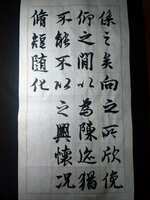 係之矣向之所欣俛
仰之間以為陳迹猶
不能不以之興懷況
脩短隨化